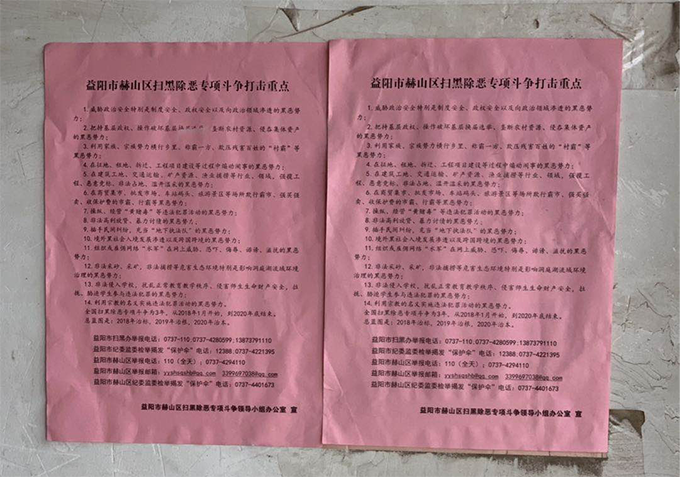 益阳市赫山区扫黑除恶专项斗争打击重点
1.威胁政治安全特别是制度安全、政权安全以及向政治领域渗透的黑恶势
力;
2.把持基层政权、操作破坏基层换届选举、垄断农村资源、侵吞集体资产
的黑恶势力;
3.利用家族、宗族势力横行乡里、称霸一方、欺压残害百姓的“村霸”等
黑恶势力;
4.在征地、租地、拆迁、工程项目建设等过程中煽动闹事的黑恶势力;
5.在建筑工地、交通运输、矿产资源、渔业捕捞等行业、领域,强揽工
程、恶意竞标、非法占地、滥开滥采的黑恶势力;
6.在商贸集市、批发市场、车站码头、旅游景区等场所欺行霸市、强买强
卖、收保护费的市霸、行霸等黑恶势力;
7.操纵、经营“黄赌毒”等违法犯罪活动的黑恶势力;
8.非法高利放贷、暴力讨债的黑恶势力;
9.插手民间纠纷,充当“地下执法队”的黑恶势力;
10.境外黑社会入境发展渗透以及跨国跨境的黑恶势力;
11.组织或雇佣网络“水军”在网上威胁、恐吓、侮辱、诽谤、滋扰的黑恶
势力;
12.非法采砂、采矿、非法捕捞等危害生态环境特别是影响洞庭湖流域环境
治理的黑恶势力;
13.非法侵入学校,扰乱正常教育教学秩序、侵害师生生命财产安全,拉
拢、胁迫学生参与违法犯罪的黑恶势力;
14.利用宗教的名义实施违法犯罪活动的黑恶势力。
全国扫黑除恶专项斗争为3年,从2018年1月开始,到2020年底结束。
总蓝图是:2018年治标、2019年治根、2020年治本。
益阳市扫黑办举报电话:0737-110;0737-4280599;13873791110
益阳市纪委监委检举揭发“保护伞”电话:12388;0737-4221395
益阳市赫山区举报电话:110(全天);0737-4294110
益阳市赫山区举报邮箱:yyshsqshb@qq.com 3399697038@qq.com
益阳市赫山区纪委监委检举揭发“保护伞”电话:0737-4401673
益阳市赫山区扫黑除恶专项斗争领导小组办公室 宣
益阳市赫山区扫黑除恶专项斗争打击重点
1.威胁政治安全特别是制度安全、政权安全以及向政治领域渗透的黑恶势
力;
2.把持基层政权、操作破坏基层换届选举、垄断农村资源、侵吞集体资产
的黑恶势力;
3.利用家族、宗族势力横行乡里、称霸一方、欺压残害百姓的“村霸”等
黑恶势力;
4.在征地、租地、拆迁、工程项目建设等过程中煽动闹事的黑恶势力;
5.在建筑工地、交通运输、矿产资源、渔业捕捞等行业、领域,强揽工
程、恶意竞标、非法占地、滥开滥采的黑恶势力;
6.在商贸集市、批发市场、车站码头、旅游景区等场所欺行霸市、强买强
卖、收保护费的市霸、行霸等黑恶势力;
7.操纵、经营“黄赌毒”等违法犯罪活动的黑恶势力;
8.非法高利放贷、暴力讨债的黑恶势力;
9.插手民间纠纷,充当“地下执法队”的黑恶势力;
10.境外黑社会入境发展渗透以及跨国跨境的黑恶势力;
11.组织或雇佣网络“水军”在网上威胁、恐吓、侮辱、诽谤、滋扰的黑恶
势力;
12.非法采砂、采矿、非法捕捞等危害生态环境特别是影响洞庭湖流域环境
治理的黑恶势力;
13.非法侵入学校,扰乱正常教育教学秩序、侵害师生生命财产安全,拉
拢、胁迫学生参与违法犯罪的黑恶势力;
14.利用宗教的名义实施违法犯罪活动的黑恶势力。
全国扫黑除恶专项斗争为3年,从2018年1月开始,到2020年底结束。
总蓝图是:2018年治标、2019年治根、2020年治本。
益阳市扫黑办举报电话:0737-110;0737-4280599;13873791110
益阳市纪委监委检举揭发“保护伞”电话:12388;0737-4221395
益阳市赫山区举报电话:110(全天);0737-4294110
益阳市赫山区举报邮箱:yyshsqshb@qq.com 3399697038@qq.com
益阳市赫山区纪委监委检举揭发“保护伞”电话:0737-4401673
益阳市赫山区扫黑除恶专项斗争领导小组办公室 宣